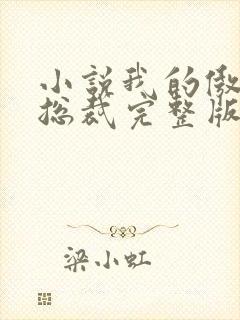 小说我的傲
总裁完整版
梁小虹